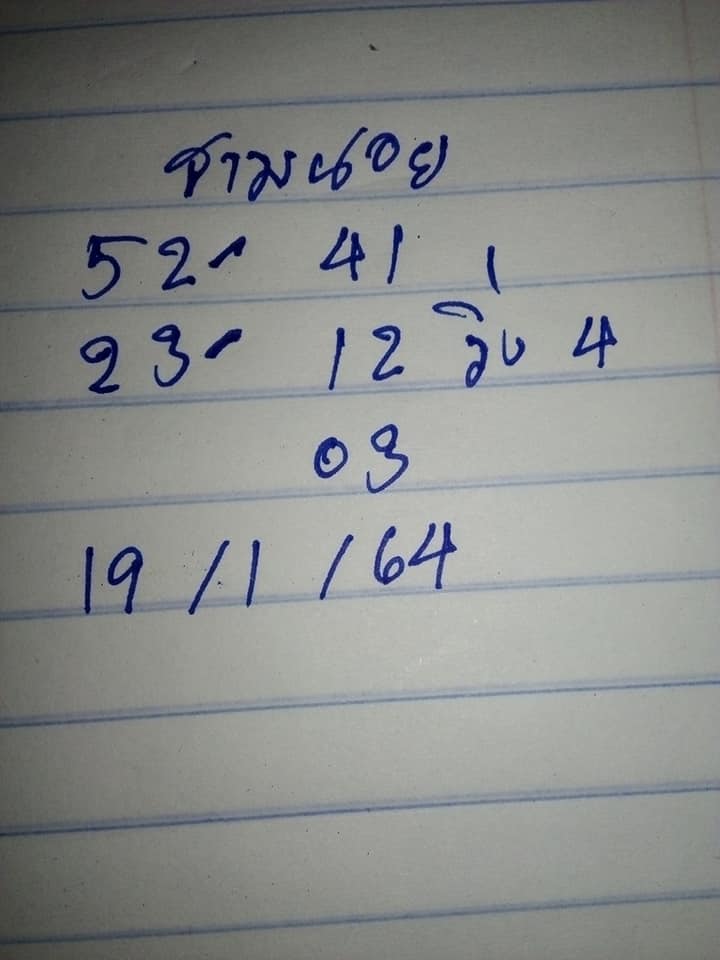 ฮานอย
52- 41
23- 12 วิ่ง 4
03
19/1/64